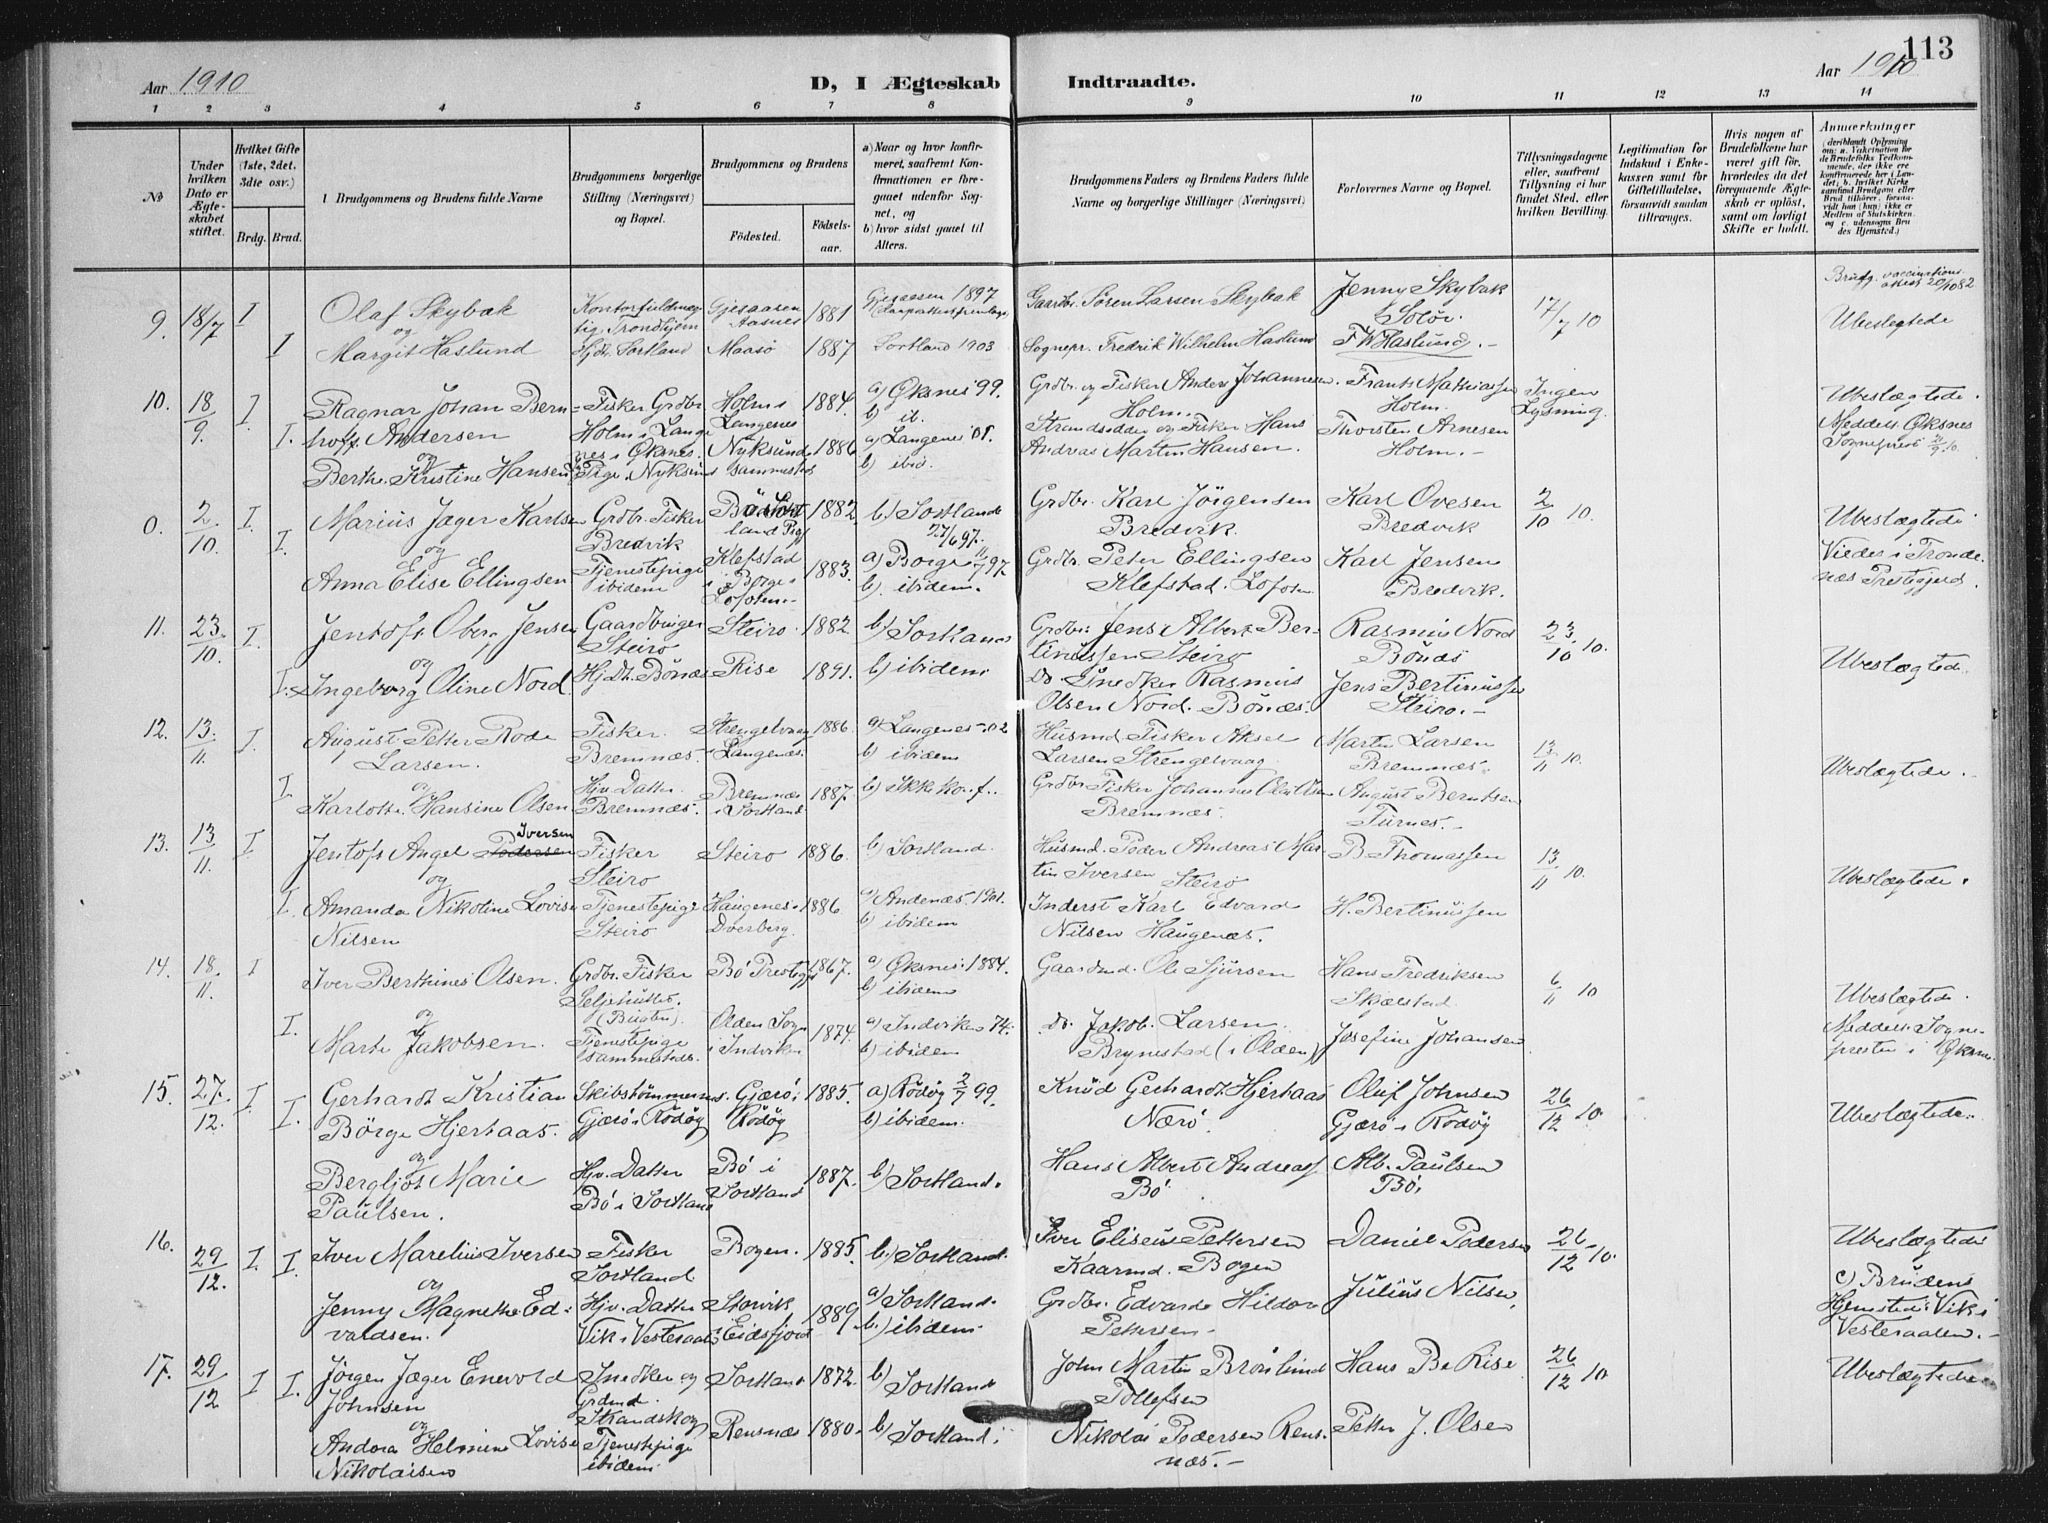 113
Aar 1910
D, I Ægteskab Indtraadte.
Aar 1910
1 2 3 4 5 6 7 8 9 10 11 12 13 14
No
Under hvilken Dato er Ægteskabet stiftet.
Hvilket Gifte (1ste, 2det, 3die osv.)
Brdg. Brud.
Brudgommens og Brudens fulde Navne
Brudgommens borgerlige Stilling (Næringsvei) og Bopæl.
Brudgommens og Brudens
Fødested.
Fødselsaar.
a) Naar og hvor konfirmeret, saafremt Konfirmationen er foregaaet udenfor Sognet, og
b) hvor sidst gaaet til Alters.
Brudgommens Faders og Brudens Faders fulde Navne og borgerlige Stillinger (Næringsvei)
Forlovernes Navne og Bopæl.
Tillysningsdagene eller, saafremt Tillysning ei har fundet Sted, efter hvilken Bevilling.
Legitimation for Indskud i Enkekassen samt for Giftetilladelse, forsaavidt saadan tiltrænges.
Hvis nogen af Brudefolkene har været gift før, hvorledes da det foregaaende Ægteskab er opløst, samt om lovligt Skifte er holdt.
Anmerkninger
9. 18/7 I Olaf Skybak Gjesaasen Aasnes 1881 Gjesaasen 1897 Gaardbr. Søren Larsen Skybak Jenny Skybak Solør. 17/7 10
og
I Margit Haslund Hjdt. Sortland Maasø 1887 Sortland 1903 Sognepr. Fredrik Wilhelm Haslund F W Haslund.- Ubeslegtede
10. 18/9. I. Ragnar Johan Bern= Fisker Grdbr. Holm i 1884. a) Øksnes '99. Grdbr. og Fisker Anders Johannesen Frants Mathiassen Ingen Ubeslægtede.
hoff Andersen Holm i Lange Langenes b) ib. Holm. Holm. Lysning. Meddelt Øksnes
og nes i Øksnes. Nyksund 1886 a) Langenes '01. Strandsidder og Fisker Hans Thorsten Arnesen
I. Berthe Kristine Hansen Pige Nyksund sammesteds b) ibid. Andreas Martin Hansen. Holm.-
0. 2/10. I. Marius Jæger Karlsen Grdbr. Fisker 1882. b.) Sortland Grdbr. Karl Jørgensen Karl Ovesen 2/10 10. Ubeslægtede
og Bredvik 27/6 97. Bredvik. Bredvik
I. Anna Elise Ellingsen Tjenestepige Klefstad 1883. a) Borge 11/7 97. Grdbr. Peter Ellingsen Karl Jensen Viedes i Tronde-
ibidem i Borge i Lofoten.- b). ibidem. Klefstad. Lofoten Bredvik. næs Prestegjeld.
11. 23./10. I. Jentoft Oberg Jensen Gaardbruger Steiro. 1882. b.) Sortland Grdbr. Jens Albert Ber= Rasmus Nord 23./10 10.
og Steiro tinussen Steiro Bönæs
I. Ingeborg Oline Nord Hj. Dt. Bönæs Rise 1891. b) ibidem. Do. Snedker Rasmus Jens Bertinussen Ubeslægtede.
Olsen Nord. Bönæs. Steiro.-
12. 13./11. I. August Petter Rode Fisker. Strengelvaag 1886. a) Langenes -02 Husmd. Fisker Aksel Martin Larsen 13/11 10.
Larsen. Bremnæs. i Langenæs. b) ibidem Larsen Strengelvaag Bremnæs. Ubeslægtede.
og
I. Karlotte Hansine Olsen Hjv. Datter Bremnæs 1887. b) ikke konf. Grdbr. Fisker Johannes Olai Olsen August Berntsen
Bremnæs. i Sortland Bremnæs. Furnes.-
13. 13/11. I. Jentoft Angel Pedersen Iversen Fisker Steiro 1886. b) Sortland. Husmd. Peder Andreas Mar- B. Thomassen 13/11 10.
og Steiro tin Iversen Steirø Ubeslægtede.
I. Amanda Nikoline Lovise Tjenestepige Haugenes i 1886. a) Andenæs -1901. Inderst Karl Edvard H. Bertinussen
Nilsen Steiro Dverberg. b) ibidem Nilsen Haugenæs.
14. 18./11. I Iver Berthines Olsen. Grdbr. Fisker Bö Prestegj 1867. a) Øksnes. 1884. Gaardmd. Ole Sjursen Hans Fredriksen 6/11 10 Ubeslægtede.
Seljehutten. (Bugten). b) ibidem Skjelstad
og
I. Marte Jakobsen. Tjenestepige Olden Sogn 1874. a) Indviken 74. do. Jakob. Larsen Josefine Johansen Meddelt Sogne-
sammesteds. i Indviken b) ibidem Brynestad (i Olden) presten i Øksnes
15. 27./12. I. I. Gerhardt Kristian Skibstömmerm. Gjærö i 1885. a) Rödöy 2/7 99. Knud Gerhardt Hjerhaas Oluf Johnsen 26/12 10. Ubeslægtede.
Börge Hjerhaas. Gjærö i Rödöy Rödöy b) ibidem. Nærö. Gjærö i Rödöy
og
Bergljot Marie Hjv. Datter Bö i 1887. b) Sortland. Hans Albert Andreass Alb. Paulsen
Paulsen. Bö i Sortland Sortland Bö Bö.
16. 29/12. I. I. Iver Marelius Iversen Fisker Bogen. 1885. b.) Sortland. Iver Eliseus Pettersen Daniel Pedersen 26/12 10. Ubeslægtede
og Sortland Kaarmd. Bogen
Jenny Magnethe Ed= Hjv. Datter Storvik 1889. a) Sortland. Grdbr. Edvard Hildor Julius Nilsen, c) Brudens
valdsen. Vik i Vesteraalen i Eidsfjord b.) ibidem Pettersen.- Hjemsted: Vik i
Vesteraalen.-
17. 29/12 I I. Jörgen Jæger Enevold Snedker og Sortland 1872. b) Sortland John Martin Brönlund Hans B. Rise 26/12 10 Ubeslægtede.
Johnsen Grdmd. Strandskog Tollefsen
og
Andora Helmine Lovise Tjenestepige Rensnæs 1880. b) Sortland. Nikolai Pedersen Rens- Petter J. Olsen
Nikolaisen ibidem næs.-